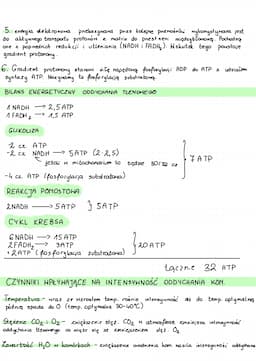 5. energia elektronów przekazywana przez kolejne przenośniki wykorzystywana jest
do aktywnego transportu protonów z matrix do przestrzeni międzybłonowej. Pochodzą
one z poprzednich redukcji i utleniania (NADH i FADH₂). Na skutek tego powstaje
gradient protonowy.
6. Gradient protonowy stanowi siłę napędową fosforylacji ADP do ATP z udziałem
syntazy ATP. Nazywamy to fosforylacją
BILANS ENERGETYCZNY ODDYCHANIA TLENOWEGO
1 NADH → 2,5 ATP
1 FADH₂ → 1,5 ATP
GLIKOLIZA
-2 cz. ATP
-2 cz. NADH → 5 ATP (2·2,5)
jeżeli w mitochondrium to będzie
-4 cz. ATP (fosforylacja substratowa)
} 7 ATP
REAKCJA POMOSTOWA
2NADH → 5 ATP } 5 ATP
CYKL KREBSA
6NADH → 15 ATP
2FADH₂ → 3 ATP
+2 ATP (fosforylacja substratowa)
} 20 ATP
Łącznie 32 ATP
CZYNNIKI WPŁYWAJĄCE NA INTENSYWNOŚĆ ODDYCHANIA KOM.
Temperatura - wraz ze wzrostem temp. rośnie intensywność ale do temp. optymalnej
później spada do 0 (temp. optymalna 30-40°C)
Stężenie CO₂ i O₂ - zwiększenie stęż. CO₂ w atmosferze zmniejsza intensywność
oddychania tlenowego za wiąże się ze zmniejszeniem stęż. O₂
Zawartość H₂O w komórkach - zwiększenie uwodnienia kom. nasila intensywność oddychania